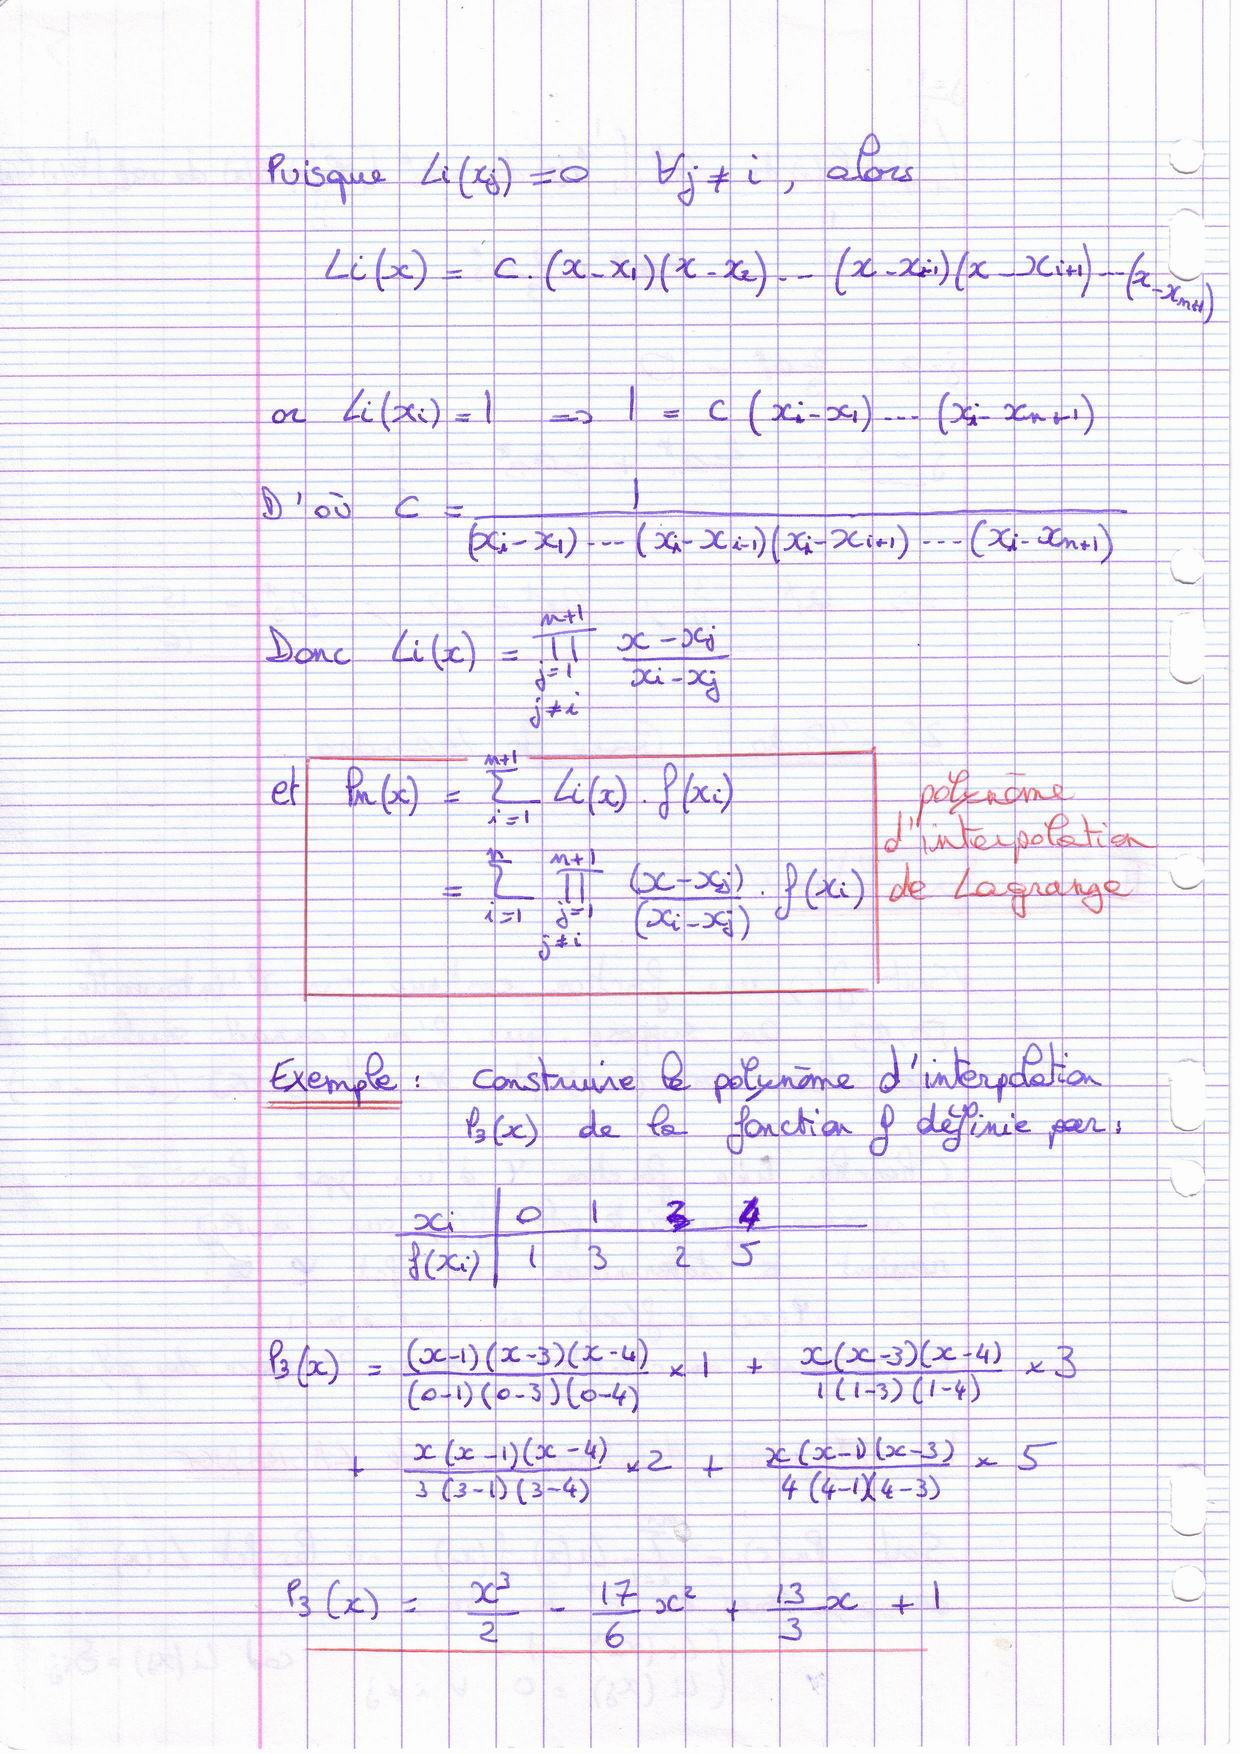 Puisque Li(xj) = 0 ∀j ≠ i, alors
Li(x) = C. (x - x1)(x - x2) --- (x - xi-1)(x - xi+1) --- (x - xn+1)
or Li(xi) = 1 => 1 = C (xi - x1) ---- (xi - xn+1)
D'où C = 1 / (xi - x1) ---- (xi - xi-1)(xi - xi+1) ---- (xi - xn+1)
Donc Li(x) = ∏ n+1 j=1 j≠i (x - xj) / (xi - xj)
et Pn(x) = ∑ n+1 i=1 Li(x) . f(xi)
= ∑ n i=1 ∏ n+1 j=1 j≠i (x - xj) / (xi - xj) . f(xi)
polynôme
d'interpolation
de Lagrange
Exemple : Construire le polynôme d'interpolation
P3(x) de la fonction f définie par :
xi | 0 1 3 4
f(xi) | 1 3 2 5
P3(x) = (x-1)(x-3)(x-4) / (0-1)(0-3)(0-4) × 1 + x(x-3)(x-4) / 1(1-3)(1-4) × 3
+ x(x-1)(x-4) / 3(3-1)(3-4) × 2 + x(x-1)(x-3) / 4(4-1)(4-3) × 5
P3(x) = x³/2 - 17/6 x² + 13/3 x + 1